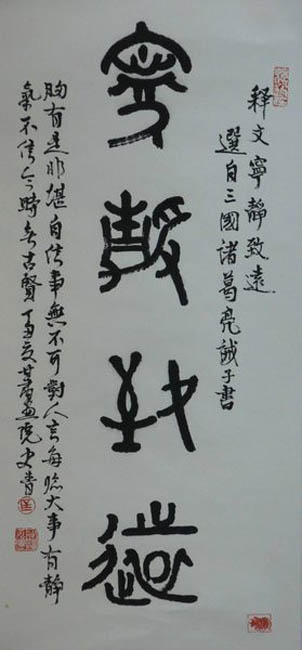 释文寧静致遠
選自三國諸葛亮誡子書
寧
静
致
遠
胸有是非堪自信事無不可對人言每临大事有静
氣不信今時無古賢丁亥